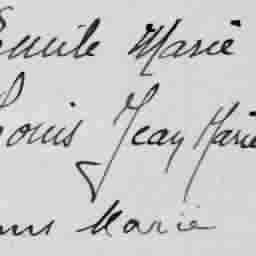 Emile Marie
Louis Jean Marie
Marie